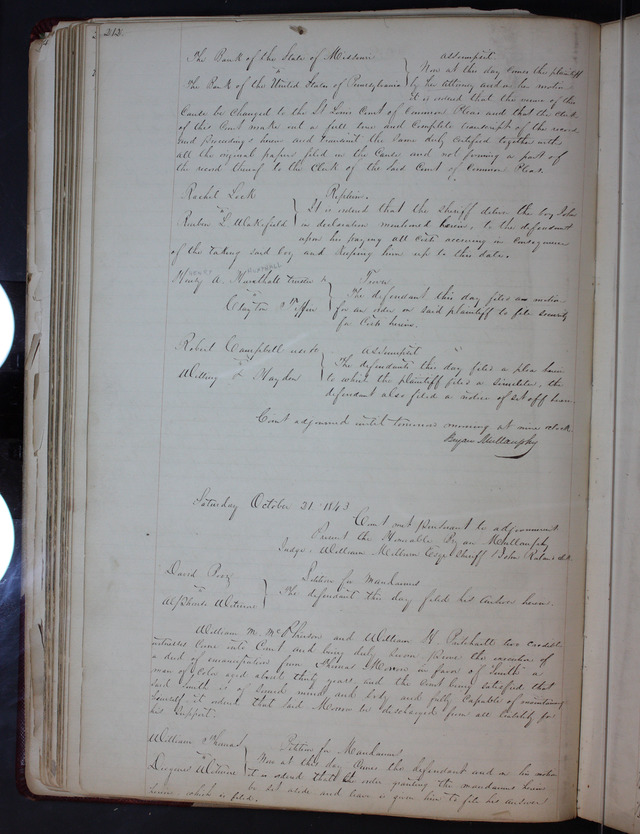 212
The Bank of the State of Missouri } assumpsit.
vs Now at this day comes the plaintiff
The Bank of the United States of Pennsylvania } by her attorney and on her motion
it is ordered that the venue of this
Cause be changed to the St Louis Court of Common Pleas and that the clerk
of this Court make out a full true and complete transcript of the record
and proceedings herein and transmit the same duly certified together with
all the original papers filed in the Cause and not forming a part of
the record thereof to the Clerk of the said Court of Common Pleas.
Rachel Lock } Replevin.
vs It is ordered that the Sheriff deliver the boy John
Reuben L. Wakefield } in declaration mentioned herein, to the defendant
upon his paying all costs accruing in consequence
of the taking said boy and keeping him up to this date.
Henry A. Marshall } Trover
vs The defendant this day files a motion
Clayton Tiffin } for an order on said plaintiff to file security
for Costs herein.
Robert Campbell use &c } assumpsit
vs The defendants this day files a plea herein
& Hayden } to which the plaintiff files a similiter, the
defendant also filed a notice of set off herein.
Court adjourned until tomorrow morning at nine oclock.
Bryan Mullanphy
Saturday October 21 1843
Court met pursuant to adjournment
Present the Honorable Bryan Mullanphy
Judge. William Milburn Esqr Sheriff & John Ruland clk
David } Petition for Mandamus
vs The defendant this day filed his answer herein.
William M. McPherson and William H. Pritchartt two credible
witnesses came into Court and being duly sworn prove the execution of
a deed of emancipation from Thomas Morrow in favor of Smith a
man of Color aged about thirty years, and the Court being satisfied that
said Smith is of sound mind and body and fully Capable of maintaining
himself, it orders that said Morrow be discharged from all liability for
his support.
William Thomas } Petition for Mandamus
vs Now at this day comes the defendant and on his motion
it is ordered that the order granting the mandamus herein
be set aside and leave is given him to file his answer
herein which is filed.